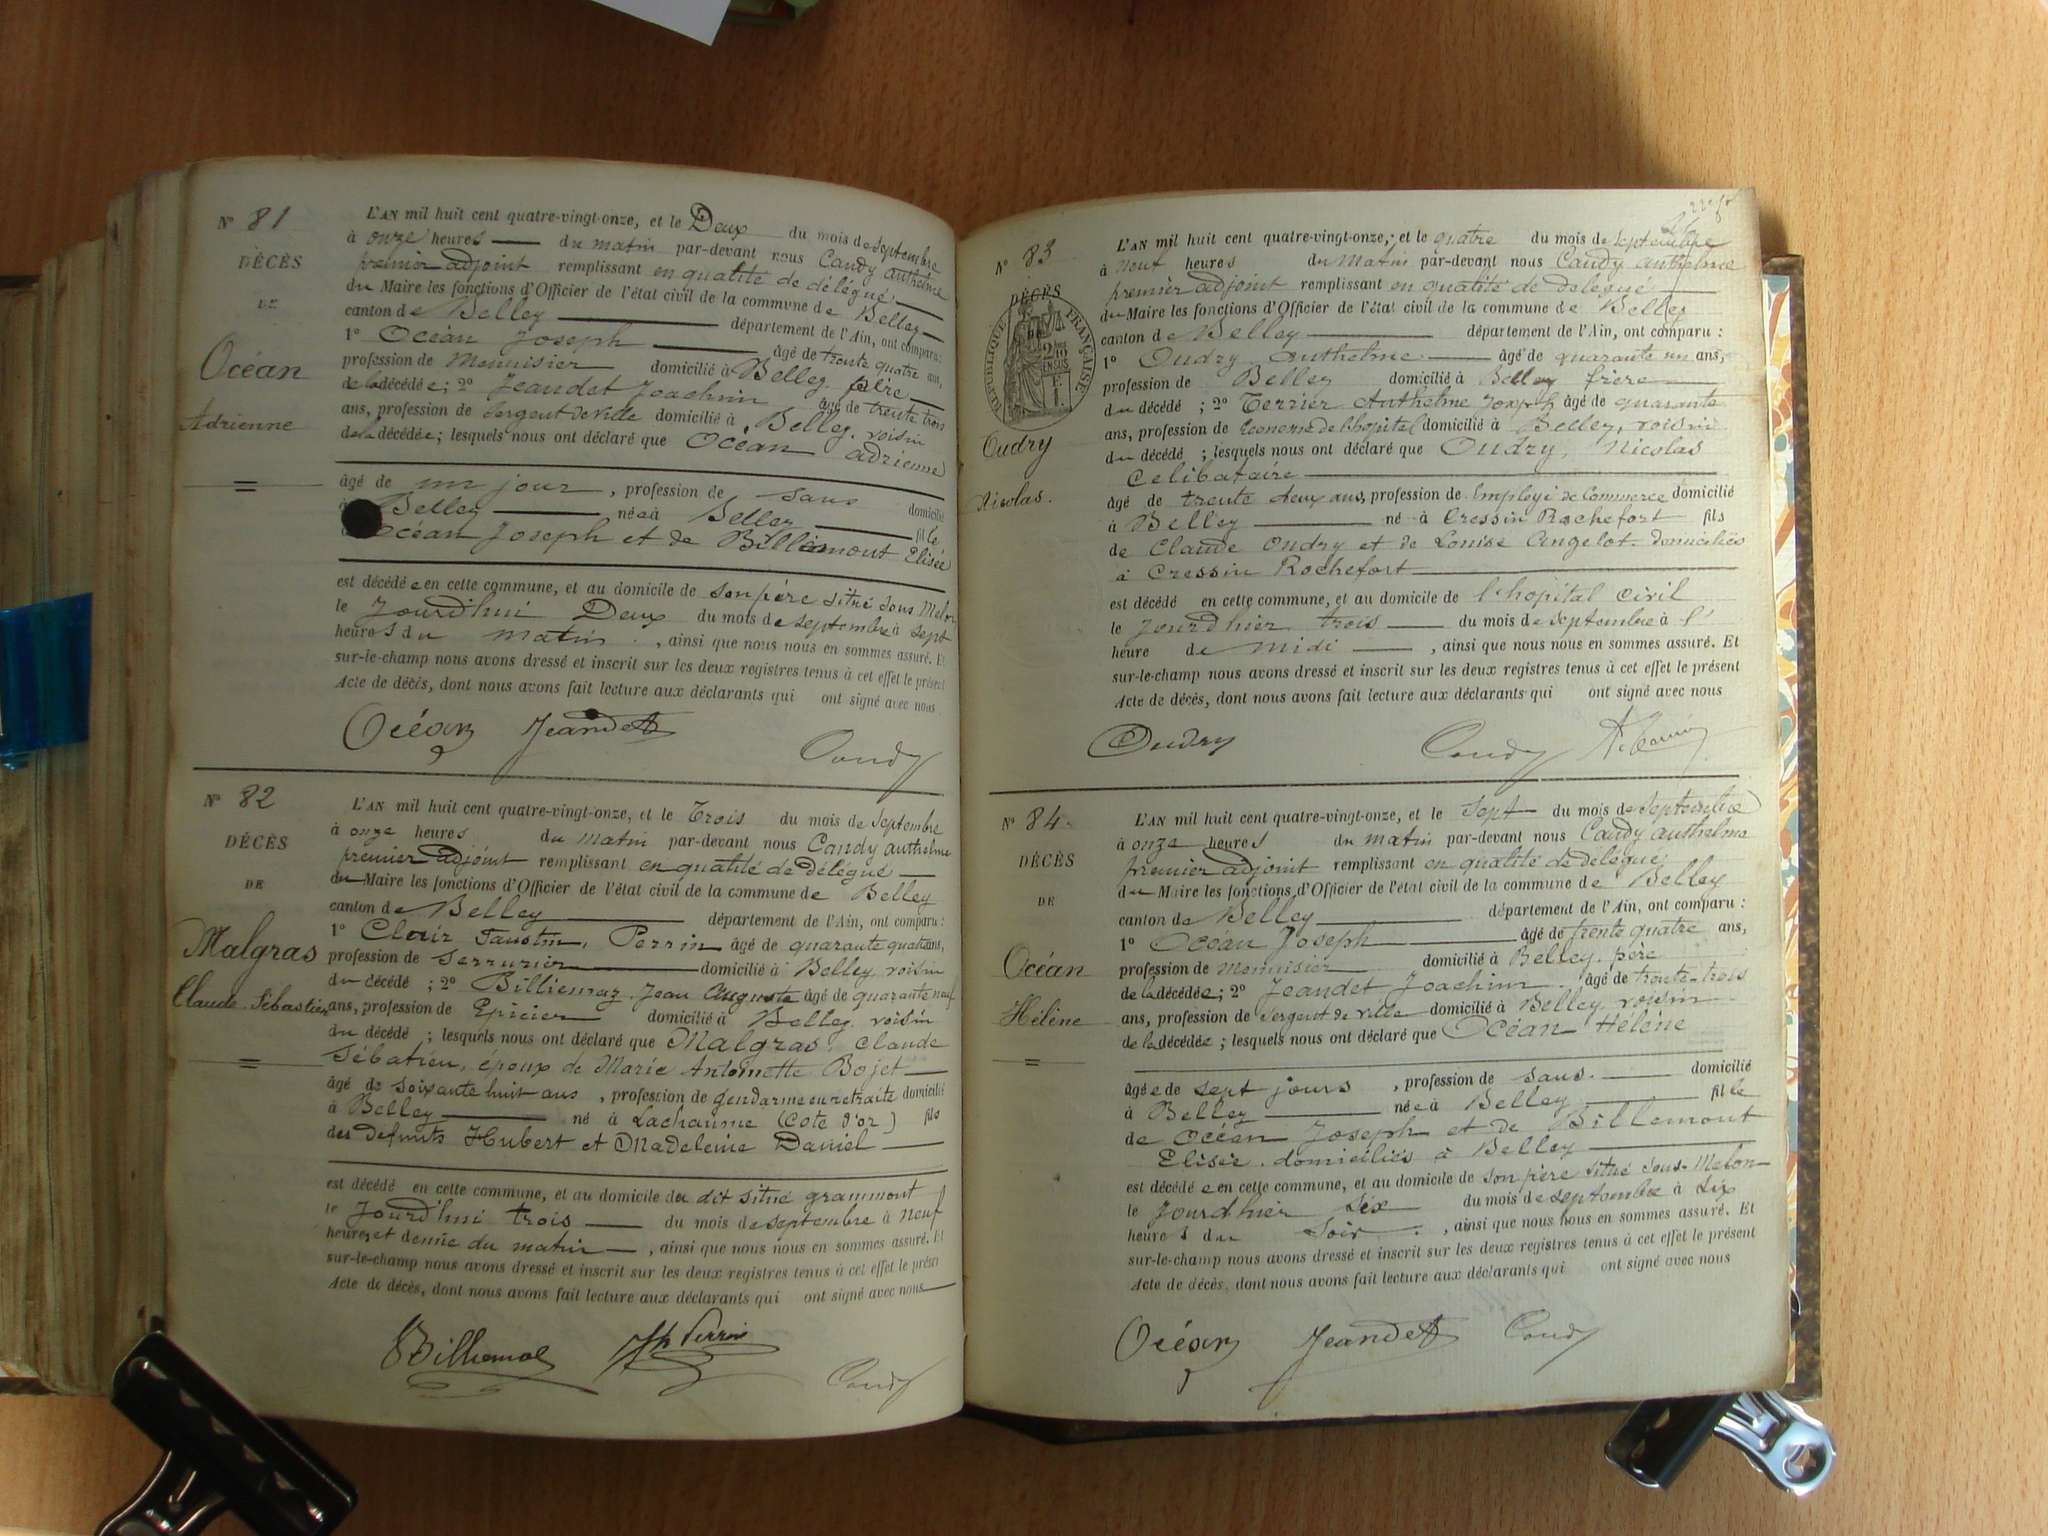 N° 81
DÉCÈS
DE
Océan
Adrienne
L'AN mil huit cent quatre-vingt-onze, et le Deux du mois de septembre
à onze heures du matin par-devant nous Candy anthelme
premier adjoint remplissant en qualité de délégué
du Maire les fonctions d'Officier de l'état civil de la commune de Belley
canton de Belley département de l'Ain, ont comparu :
1° Océan Joseph âgé de trente quatre ans,
profession de Menuisier domicilié à Belley. père
de la décédée ; 2° Jeandet Joachim âgé de trente trois
ans, profession de Sergent de ville domicilié à Belley. voisin
de la décédée ; lesquels nous ont déclaré que Océan adrienne
âgé de un jour , profession de sans domicilié
Belley née à Belley fille
Océan Joseph et de Billemont Elisée
est décédée en cette commune, et au domicile de son père situé sous Melon
le Jourd'hui Deux du mois de septembre à sept
heures du matin , ainsi que nous nous en sommes assuré. Et
sur-le-champ nous avons dressé et inscrit sur les deux registres tenus à cet effet le présent
Acte de décès, dont nous avons fait lecture aux déclarants qui ont signé avec nous
Océan Jeandet Candy
N° 82
DÉCÈS
DE
Malgras
Claude Sébastien
L'AN mil huit cent quatre-vingt-onze, et le Trois du mois de septembre
à onze heures du matin par-devant nous Candy anthelme
premier adjoint remplissant en qualité de Délégué
du Maire les fonctions d'Officier de l'état civil de la commune de Belley
canton de Belley département de l'Ain, ont comparu :
1° Clair Faustin, Perrin âgé de quarante quatre ans,
profession de Serrurier domicilié à Belley voisin
du décédé ; 2° Billiemaz Jean Auguste âgé de quarante neuf
ans, profession de Epicier domicilié à Belley voisin
du décédé ; lesquels nous ont déclaré que Malgras Claude
Sébatien, époux de Marie Antoinette Bojet
âgé de soixante huit ans , profession de gendarme en retraite domicilié
à Belley né à Lachaume (Cote d'or) fils
des defunts Hubert et Madeleine Daniel
est décédé en cette commune, et au domicile du dit situé grammont
le Jourd'hui trois du mois de septembre à neuf
heures et demie du matin , ainsi que nous nous en sommes assuré. Et
sur-le-champ nous avons dressé et inscrit sur les deux registres tenus à cet effet le prései
Acte de décès, dont nous avons fait lecture aux déclarants qui ont signé avec nous
Perrin Candy
N° 83
DÉCÈS
RÉPUBLIQUE FRANÇAISE
Oudry
Nicolas.
L'AN mil huit cent quatre-vingt-onze, et le quatre du mois de septembre
à neuf heures du matin par-devant nous Candy anthelme
premier adjoint remplissant en qualité de délégué
du Maire les fonctions d'Officier de l'état civil de la commune de Belley
canton de Belley département de l'Ain, ont comparu :
1° Oudry Anthelme âgé de quarante un ans,
profession de Belley domicilié à Belley frère
du décédé ; 2° Terrier Anthelme Joseph âgé de quarante
ans, profession de Econome de l'hopital domicilié à Belley, voisin
du décédé ; lesquels nous ont déclaré que Oudry, Nicolas
Celibataire
âgé de trente deux ans, profession de Employé de Commerce domicilié
à Belley né à Cressin Rochefort fils
de Claude Oudry et de Louise Angelot domiciliés
à Cressin Rochefort
est décédé en cette commune, et au domicile de l'hopital civil
le Jourd'hier trois du mois de septembre à l'
heure de midi , ainsi que nous nous en sommes assuré. Et
sur-le-champ nous avons dressé et inscrit sur les deux registres tenus à cet effet le présent
Acte de décès, dont nous avons fait lecture aux déclarants qui ont signé avec nous
Oudry Candy
N° 84
DÉCÈS
DE
Océan
Hélène
L'AN mil huit cent quatre-vingt-onze, et le Sept du mois de Septembre
à onze heures du matin par-devant nous Candy anthelme
premier adjoint remplissant en qualité de délégué
du Maire les fonctions d'Officier de l'état civil de la commune de Belley
canton de Belley département de l'Ain, ont comparu :
1° Océan Joseph âgé de trente quatre ans,
profession de Menuisier domicilié à Belley. père
de la décédée ; 2° Jeandet Joachim. âgé de trente-trois
ans, profession de Sergent de ville domicilié à Belley voisin
de la décédée ; lesquels nous ont déclaré que Océan Hélène
âgée de sept jours , profession de sans. domicilié
à Belley née à Belley fille
de Océan Joseph et de Billemont
Elisée. domiciliés à Belley
est décédée en cette commune, et au domicile de son père situé sous-Melon
le Jourd'hier six du mois de septembre à six
heures du soir , ainsi que nous nous en sommes assuré. Et
sur-le-champ nous avons dressé et inscrit sur les deux registres tenus à cet effet le présent
Acte de décès, dont nous avons fait lecture aux déclarants qui ont signé avec nous
Océan Jeandet Candy